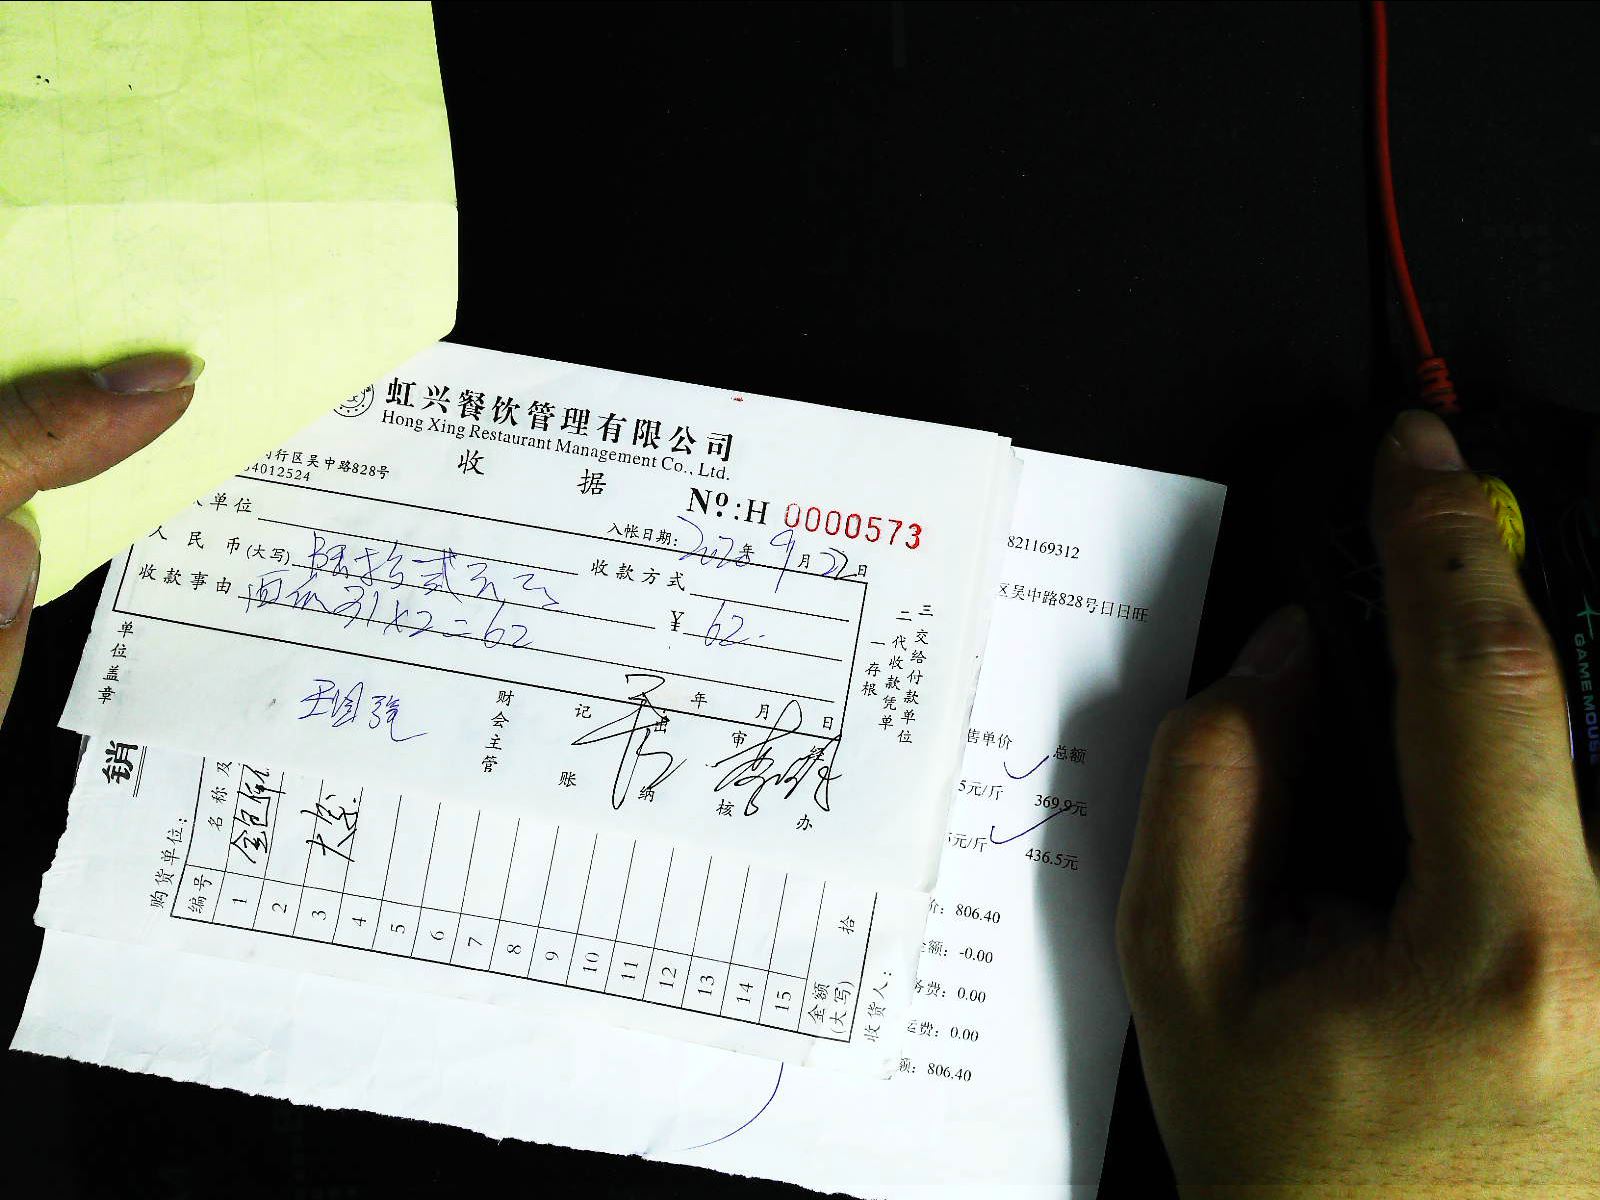 虹兴餐饮管理有限公司
Hong Xing Restaurant Management Co., Ltd.
收 据
行区吴中路828号
54012524
№:H 0000573
入帐日期: 2020年9月22日
单位
收款方式
人民币(大写) 陆拾贰元
¥ 62.
收款事由 31×2=62
单位盖章
财会主管
记账
出纳
审核
经办
年 月 日
一存根
二代收款凭单
三交给付款单位
销
购货单位:
编号
名称及
1
2
3
4
5
6
7
8
9
10
11
12
13
14
15
金额(大写)
拾
收货人:
821169312
区吴中路828号日日旺
售单价 总额
5元/斤 369.9元
元/斤 436.5元
价: 806.40
额: -0.00
务费: 0.00
运费: 0.00
额: 806.40
GAMEMOUSE